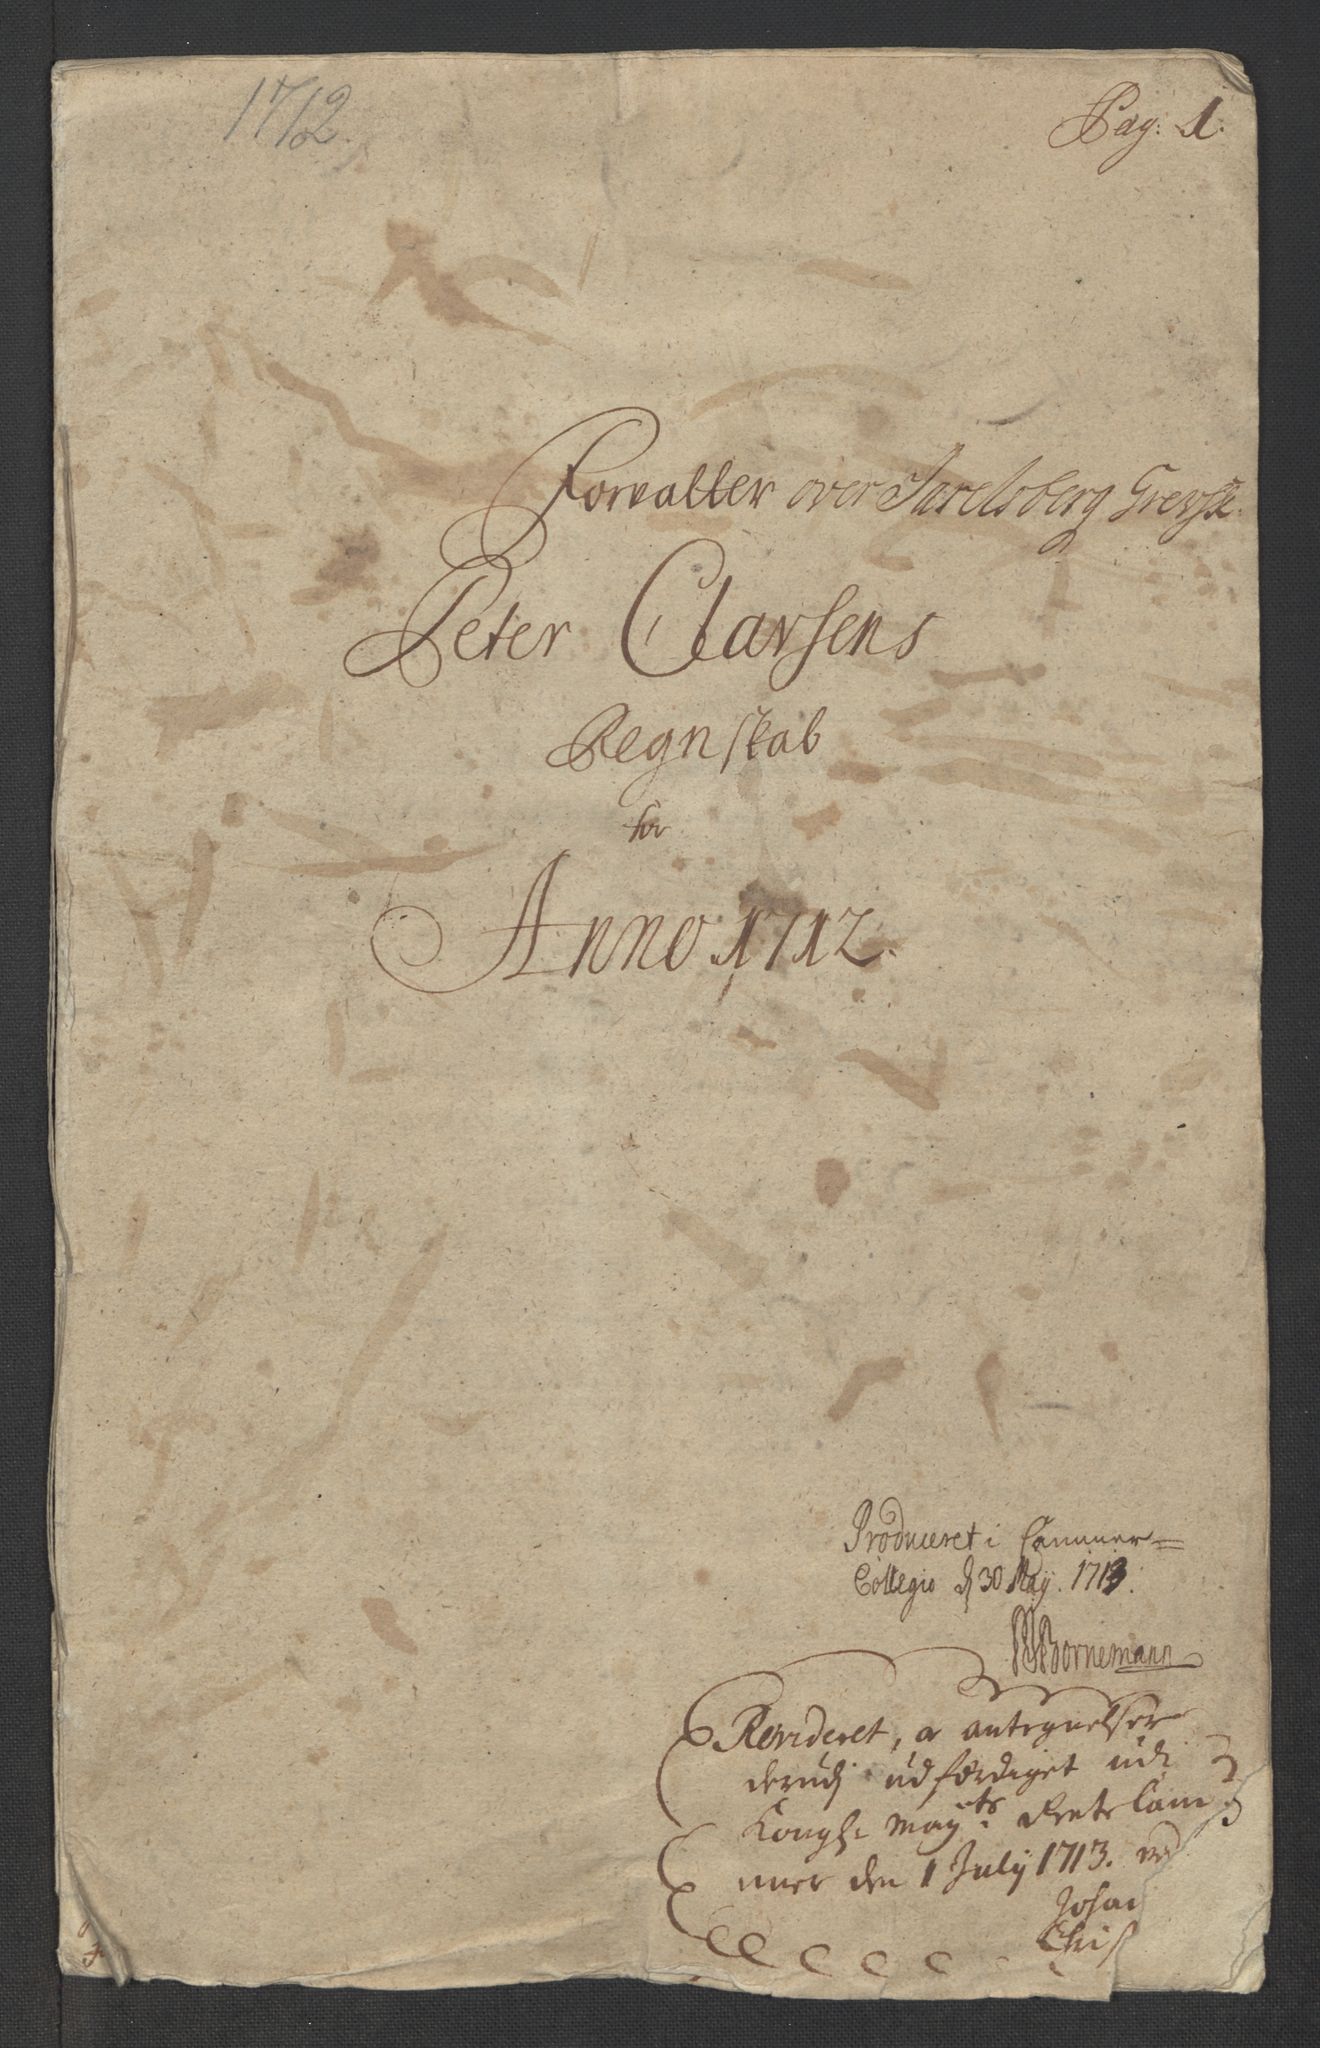 1712.
Pag: 1.
Forvalter over Jarelsberg Grevsk:
Peter Clarsens
Regnskab
for
Anno 1712.
Produceret i Cammer=
Collegio d 30 Maij. 1713.
Bornemann
Revideret, og antegnelser
derudj udfærdiget udi
Kongl: Mayts: Rente Cam
mer den 1 Julij 1713. ved
Johan
Chris